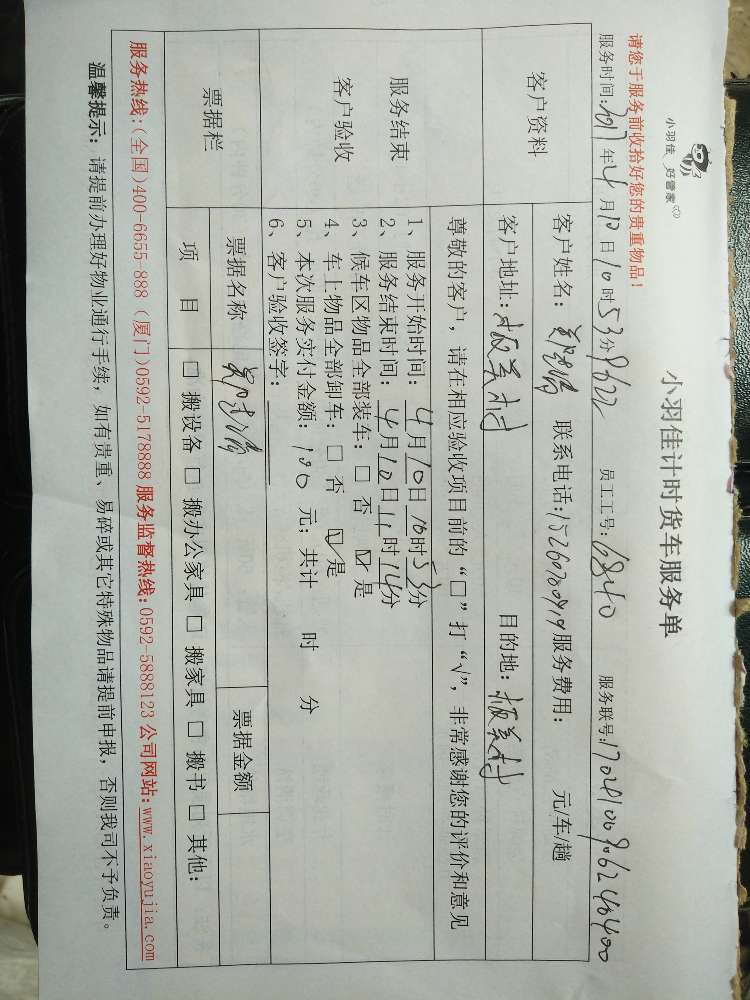 小羽佳 好管家
小羽佳计时货车服务单
请您于服务前收拾好您的贵重物品！
服务时间：2017年4月10日10时53分 员工工号：6840 服务联号：
客户资料
客户姓名： 联系电话： 服务费用： 元/车/趟
客户地址：板美村 目的地：板美村
服务结束
客户验收
尊敬的客户，请在相应验收项目前的“□”打“√”，非常感谢您的评价和意见
1、服务开始时间：4月10日10时53分
2、服务结束时间：4月10日11时14分
3、候车区物品全部装车：□ 否 ☑ 是
4、车上物品全部卸车：□ 否 ☑ 是
5、本次服务实付金额：100 元；共计 时 分
6、客户验收签字：
票据栏
票据名称 票据金额
项 目 □ 搬设备 □ 搬办公家具 □ 搬家具 □ 搬书 □ 其他：
服务热线：(全国)400-6655-888 (厦门)0592-5178888 服务监督热线：0592-5888123 公司网站：www.xiaoyujia.com
温馨提示：请提前办理好物业通行手续，如有贵重、易碎或其它特殊物品请提前申报，否则我司不予负责。